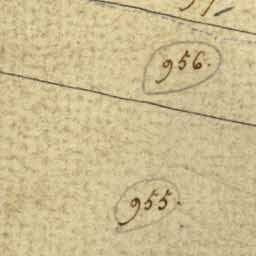 956.
955.